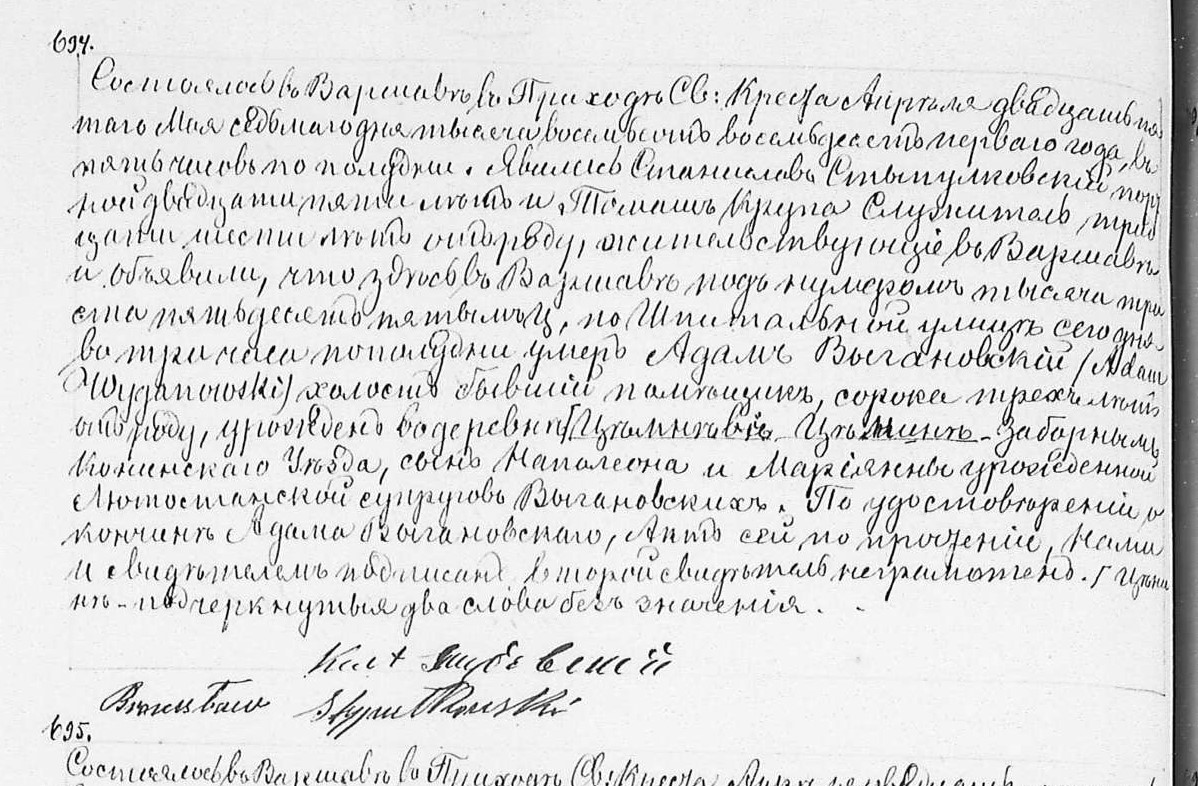 694.
Состоялось въ Варшавѣ въ Приходѣ Св: Креста Апрѣля двадцать пя
таго Мая седьмаго дня тысяча восемьсотъ восемьдесятъ перваго года, въ
пять часовъ по полудни. Явились Станиславъ Стыпулковскій порт
ной двадцати пяти лѣтъ и Томашъ Крупа Служитель трид
цати шести лѣтъ отъ роду, жительствующіе въ Варшавѣ
и объявили, что здѣсь въ Варшавѣ подъ нумеромъ тысяча три
ста пятьдесятъ пятымъ, по Шпитальной улицѣ сего дня
въ три часа пополудни умеръ Адамъ Выгановскій /Adam
Wyganowski/ холостъ бывшій помѣщикъ, сорока трехъ лѣтъ
отъ роду, урожденъ въ деревнѣ Заборнымъ
Конинскаго Уѣзда, сынъ Наполеона и Маріянны урожденной
Лютостанской супруговъ Выгановскихъ. По удостовѣреніи о
кончинѣ Адама Выгановскаго, Актъ сей по прочтеніи, Нами
и свидѣтелемъ подписанъ второй свидѣтель неграмотенъ.
нѣ - подчеркнутыя два слова безъ значенія.
Stypułkowski
695.
Состоялось въ Варшавѣ въ Приходѣ Св: Креста